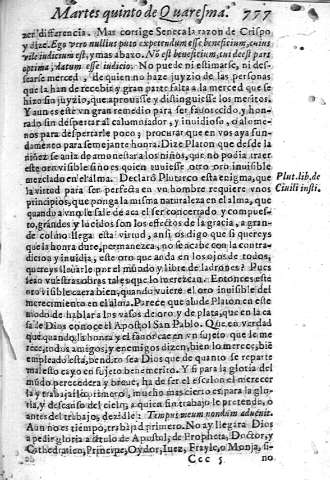 Martes quinto de Quaresma. 777
zer differencia. Mas corrige Seneca la razon de Crispo,
y dize. Ego vero nullius puto expetendum esse beneficium, cuius
vile iudicium est, y mas abaxo. No est beneficium, cui deest pars
optima, datum esse iudicio. No puede ni estimarse, ni des-
searse merced, de quien no haze juyzio de las personas
que la han de recebir, y gran parte falta a la merced que se
hizo sin juyzio, que aprouasse y distinguiesse los meritos.
Y aun es este vn gran remedio para ser fauorecido, y hon-
rado sin despertar al calumniador, y inuidioso, o a lo me-
nos para despertarle poco; procurar que en vos aya fun-
damento para semejante honra. Dize Platon que desde la
niñez se auia de amonestar a los niños, que no podia traer
este oro visible sino es quien tuuiesse otro oro inuisible
mezclado en el alma. Declarò Plutarco esta enigma, que
la virtud para ser perfecta en vn hombre requiere vnos
principios, que ponga la misma naturaleza en el alma, que
quando a vno le sale de acà el ser concertado, y compues-
to, grandes y luzidos son los effectos de la gracia, a gran-
de colmo llega esta virtud, ansi os digo que si quereys
que la honra dure, permanezca, no se acabe con la contra-
dicion y inuidia, este oro que anda en los ojos de todos,
quereys lleuarle por el mundo y libre de ladrones? Pues
sean vuestras obras tales que lo merezcan. Entonces este
oro visible caera bien, quando huuiere el oro inuisible del
merecimiento en el alma. Parece que alude Platon en este
modo de hablar a los vasos de oro y de plata, que en la ca
sa de Dios conoce el Apostol San Pablo. Que en verdad
que quando la honra y el fauor cae en vn sujeto que le me
rece, todos amigos, y enemigos dizen, bien lo merece, biē
empleado està, bendito sea Dios que de quanto se reparte
mal esto cayo en sujeto benemerito. Y si para la gloria del
mūdo percedera y breue, ha de ser el escalon el merecer
la y trabajarlo primero, mucho mas cierto es para la glo-
ria, y descanso del cielo, a quien sin trabajo le pretende, o
antes del trabajo, dezilde: Tempus meum nondum aduenit.
Aun no es tiempo, trabajad primero. No ay llegar a Dios
a pedir gloria a titulo de Apostol, de Propheta, Doctor, y
Cathedratico, Principe, Oydor, Iuez, Frayle, o Monja, si-
Ccc 5 no
Plut. lib. de
Ciuili insti.